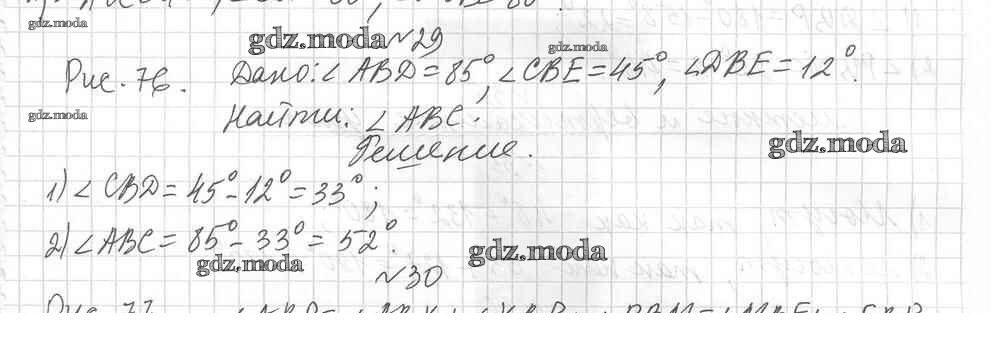 gdz.moda
gdz.moda №29 gdz.moda
Рис. 76. Дано: ∠ABD = 85°, ∠CBE = 45°, ∠DBE = 12°.
gdz.moda Найти: ∠ABC.
Решение. gdz.moda
1) ∠CBD = 45° - 12° = 33°;
2) ∠ABC = 85° - 33° = 52°.
gdz.moda gdz.moda
№30